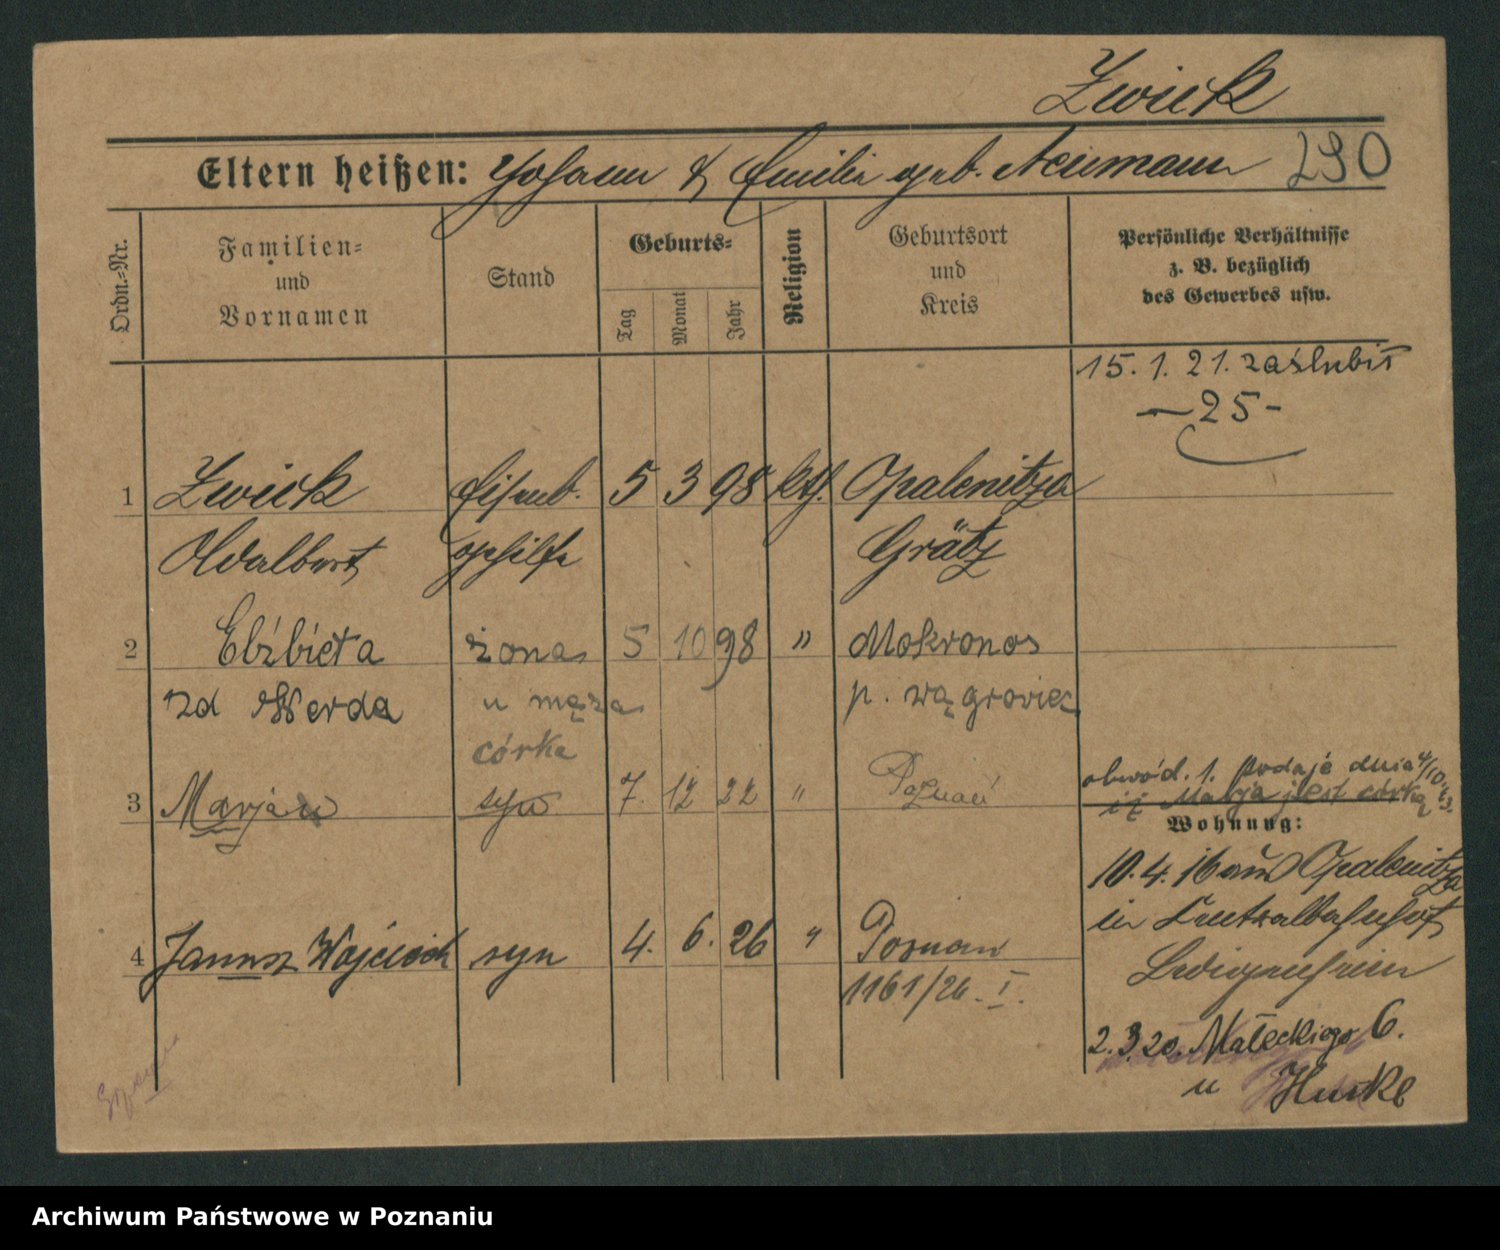 Zwick
Eltern heißen: Johann & Emilie geb. Neumann 290
Ordn.=Nr.
Familien=
und
Vornamen
Stand
Geburts=
Tag
Monat
Jahr
Religion
Geburtsort
und
Kreis
Persönliche Verhältnisse
z. B. bezüglich
des Gewerbes usw.
15. 1. 21. zaślubił
—25-
1 Zwick Eisenb. 5 3 98 kth. Opalenitza
Adalbert gehilfe Grätz
2 Elżbieta żona 5 10 98 " Mokronos
zd Werda u męża p. wągrowiec
córka
3 Marjan syn 7. 12 22 " Poznań
obwód. 1. podaje dnia 4/10.23.
iż Marja jest córką
Wohnung:
10. 4. 16 aus Opalenitza
in Centralbahnhof
Ledigenheim
4 Janusz Wojciech syn 4. 6. 26 " Poznań
1161/26. I.
2. 3. 20. Małeckiego 6.
u Huske
Archiwum Państwowe w Poznaniu